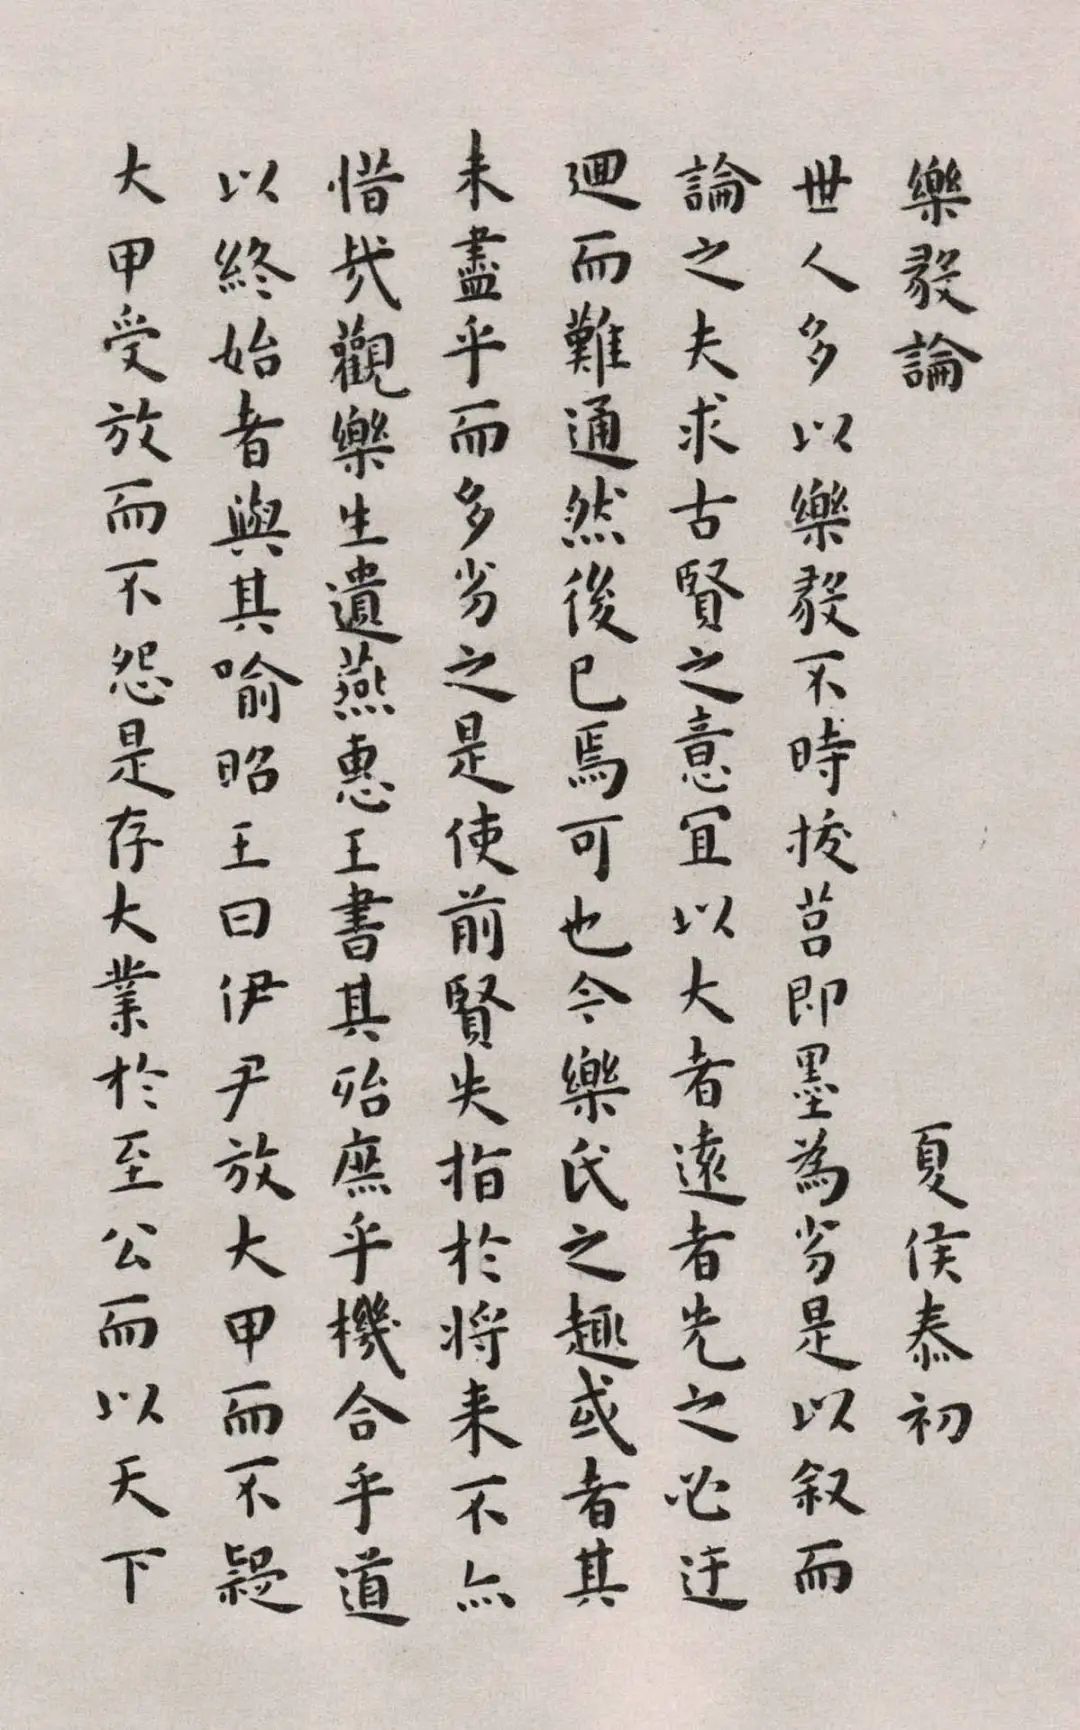 樂毅論　夏侯泰初
世人多以樂毅不時拔莒即墨為劣是以叙而
論之夫求古賢之意宜以大者遠者先之必迂
迴而難通然後已焉可也今樂氏之趣或者其
未盡乎而多劣之是使前賢失指於将来不亦
惜哉觀樂生遺燕惠王書其殆庶乎機合乎道
以終始者與其喻昭王曰伊尹放大甲而不疑
大甲受放而不怨是存大業於至公而以天下